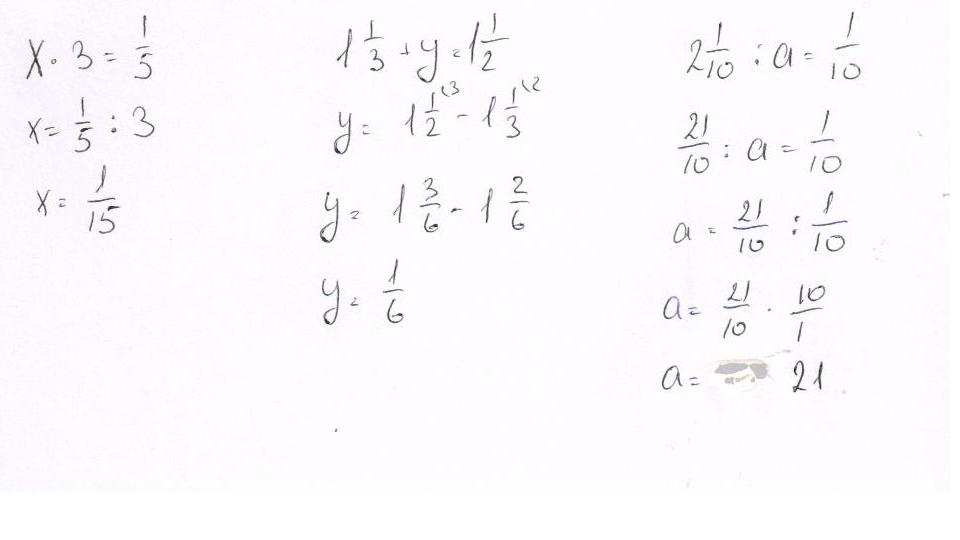 x · 3 = 1/5
x = 1/5 : 3
x = 1/15
1 1/3 + y = 1 1/2
y = 1 1/2 (3 - 1 1/3 (2
y = 1 3/6 - 1 2/6
y = 1/6
2 1/10 : a = 1/10
21/10 : a = 1/10
a = 21/10 : 1/10
a = 21/10 · 10/1
a = 21